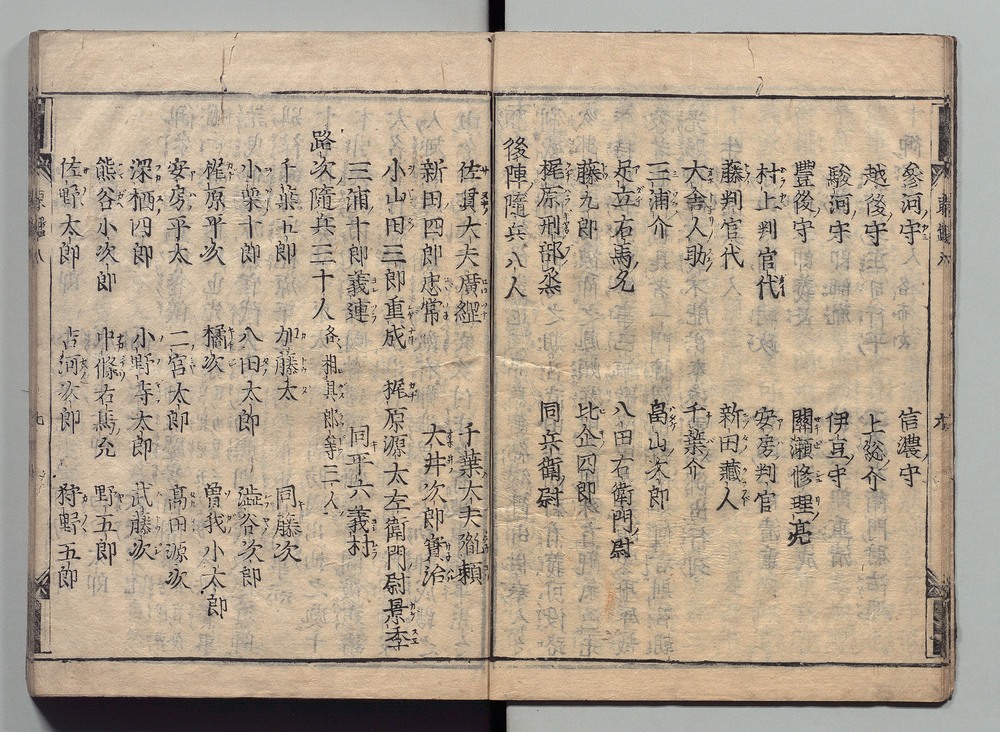 參河守　信濃守
越後守　上總介
駿河守　伊豆守
豐後守　關瀬修理亮
村上判官代　安房判官
藤判官代　新田藏人
大舍人助　千葉介
三浦介　畠山次郎
足立右馬允　八田右衛門尉
藤九郎　比企四郎
梶原刑部烝　同兵衛尉
後陣隨兵八人
佐貫大夫廣經　千葉大夫胤頼
新田四郎忠常　大井次郎實治
小山田三郎重成　梶原源太左衛門尉景季
三浦十郎義連　同平六義村
路次隨兵三十人各相具郎等三人
千葉五郎　加藤太　同藤次
小栗十郎　八田太郎　澁谷次郎
梶原平次　橘次　曽我小太郎
安房平太　二宮太郎　髙田源次
深栖四郎　小野寺太郎　武藤次
熊谷小次郎　中條右馬允　野五郎
佐野太郎　吉河次郎　狩野五郎